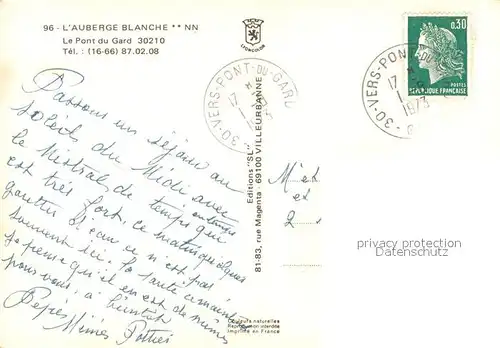 96 - L'AUBERGE BLANCHE ** NN
Le Pont du Gard 30210
Tél. : (16-66) 87.02.08
LYONCOLOR
Passons un séjour au
soleil du Midi avec
le Mistral de temps en temps qui
est très fort, ce matin quelques
gouttes d'eau ce n'est pas
souvent ici. La santé
je pense qu'il en est de même
pour vous, a bientôt
Pépés Mémés
Editions "SL"
81-83, rue Magenta - 69100 VILLEURBANNE
Couleurs naturelles
Reproduction interdite
Imprimé en France
30-VERS-PONT-DU-GARD
17
30-VERS-PONT-DU-GARD
17 H
1973
0,30
POSTES
REPUBLIQUE FRANÇAISE
M et
et
2
privacy protection
Datenschutz